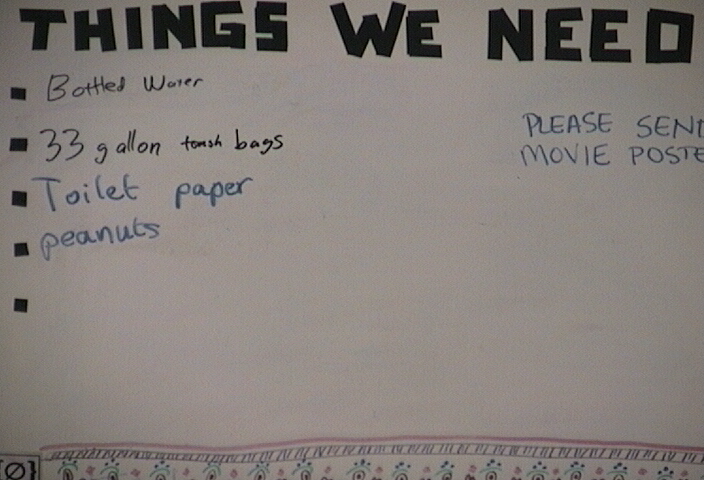 THINGS WE NEED
Bottled Water
33 gallon trash bags
Toilet paper
peanuts
PLEASE SEND
MOVIE POSTE
{Ø}